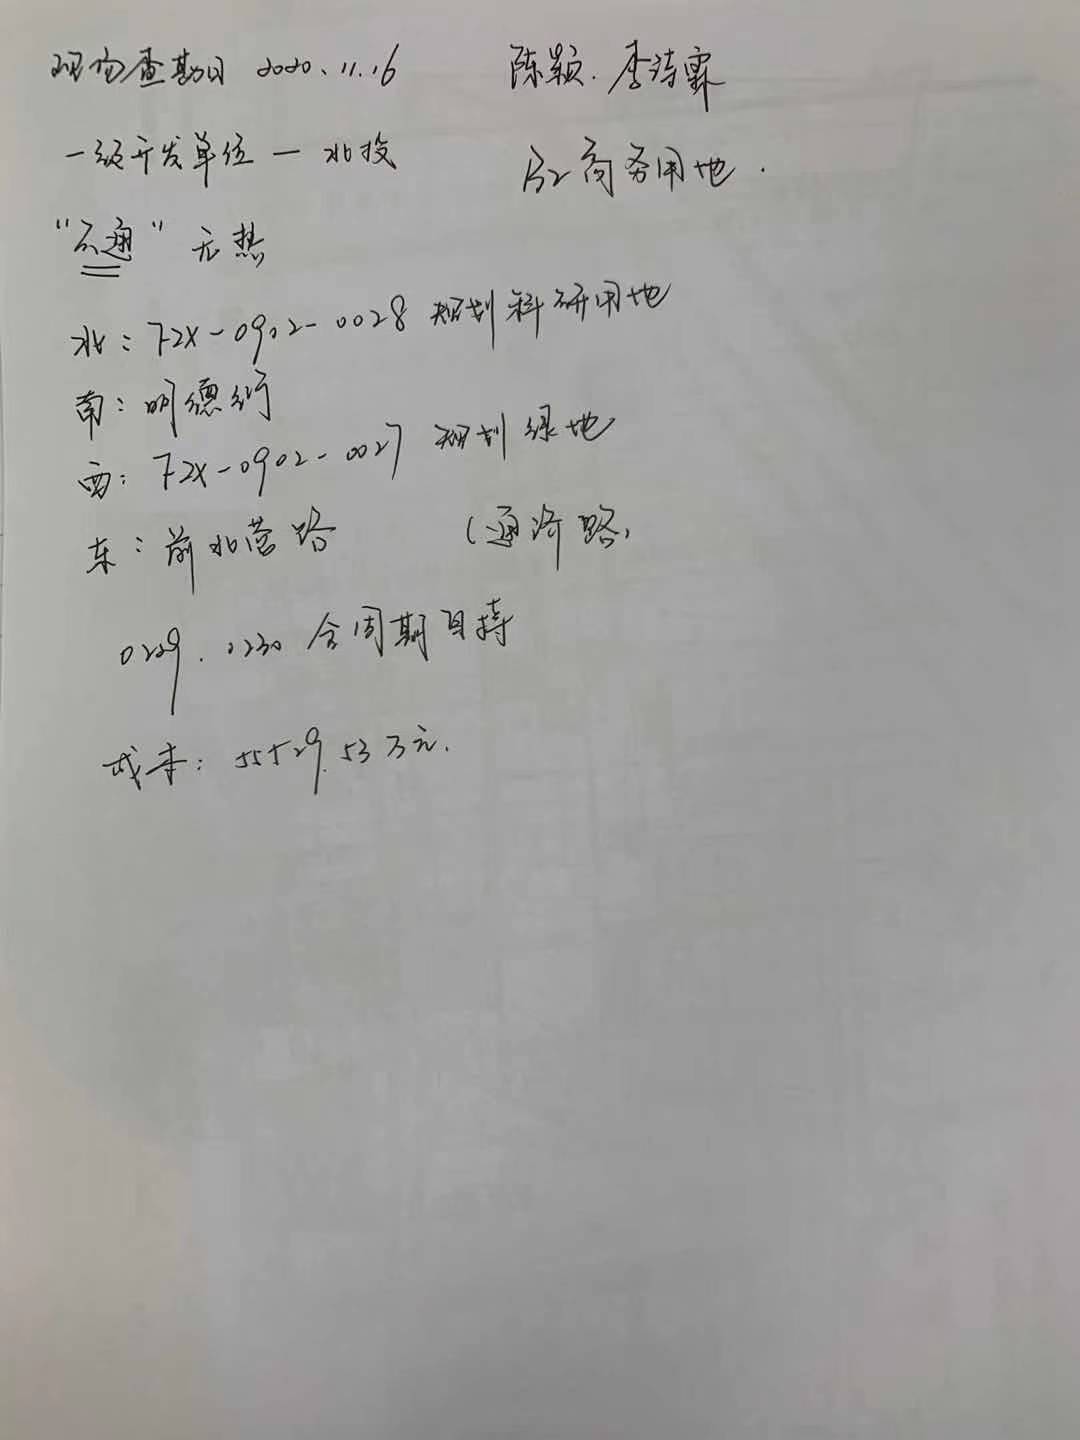 现场查勘日 2020.11.16 陈颖.李诗霖
一级开发单位—北投 B2商务用地.
"六通" 无热
北：FZX-0902-0028 规划科研用地
南：明德街
西：FZX-0902-0027 规划绿地
东：前北营路 (通济路)
0229.0230 全周期自持
成本：55529.53万元.